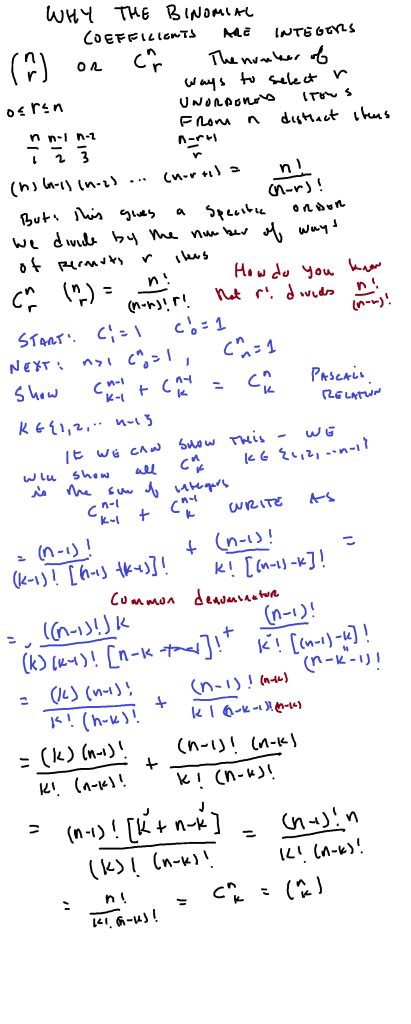 WHY THE BINOMIAL
COEFFICIENTS ARE INTEGERS
(n r) OR C^n_r The number of
ways to select r
0≤r≤n UNORDERED ITEMS
FROM n distinct items
n/1 n-1/2 n-2/3 n-r+1/r
(n)(n-1)(n-2) ... (n-r+1) = n!/(n-r)!
But: This gives a specific ORDER
We divide by the number of ways
of r items
C^n_r (n r) = n!/((n-r)! r!) How do you know
that r! divides n!/(n-r)!
START: C^1_1 = 1 C^1_0 = 1
NEXT: n>1 C^n_0 = 1, C^n_n = 1
Show C^{n-1}_{k-1} + C^{n-1}_k = C^n_k PASCAL'S
RELATION
K∈{1,2,.. n-1}
If WE CAN SHOW THIS – WE
will show all C^n_k k∈{1,2,...n-1}
is the sum of integers
C^{n-1}_{k-1} + C^{n-1}_k WRITE AS
= (n-1)!/((k-1)! [(n-1)-(k-1)]!) + (n-1)!/(k! [(n-1)-k]!) =
Common denominator
= ((n-1)!)k/((k)(k-1)! [n-k]!) + (n-1)!/(k! [(n-1)-k]!)
(n-k-1)!
= (k)(n-1)!/(k! (n-k)!) + (n-1)! (n-k)/(k! (n-k-1)! (n-k))
= (k)(n-1)!/(k! (n-k)!) + (n-1)! (n-k)/(k! (n-k)!)
= (n-1)! [k + n-k]/((k)! (n-k)!) = (n-1)! n/(k! (n-k)!)
= n!/(k! (n-k)!) = C^n_k = (n k)